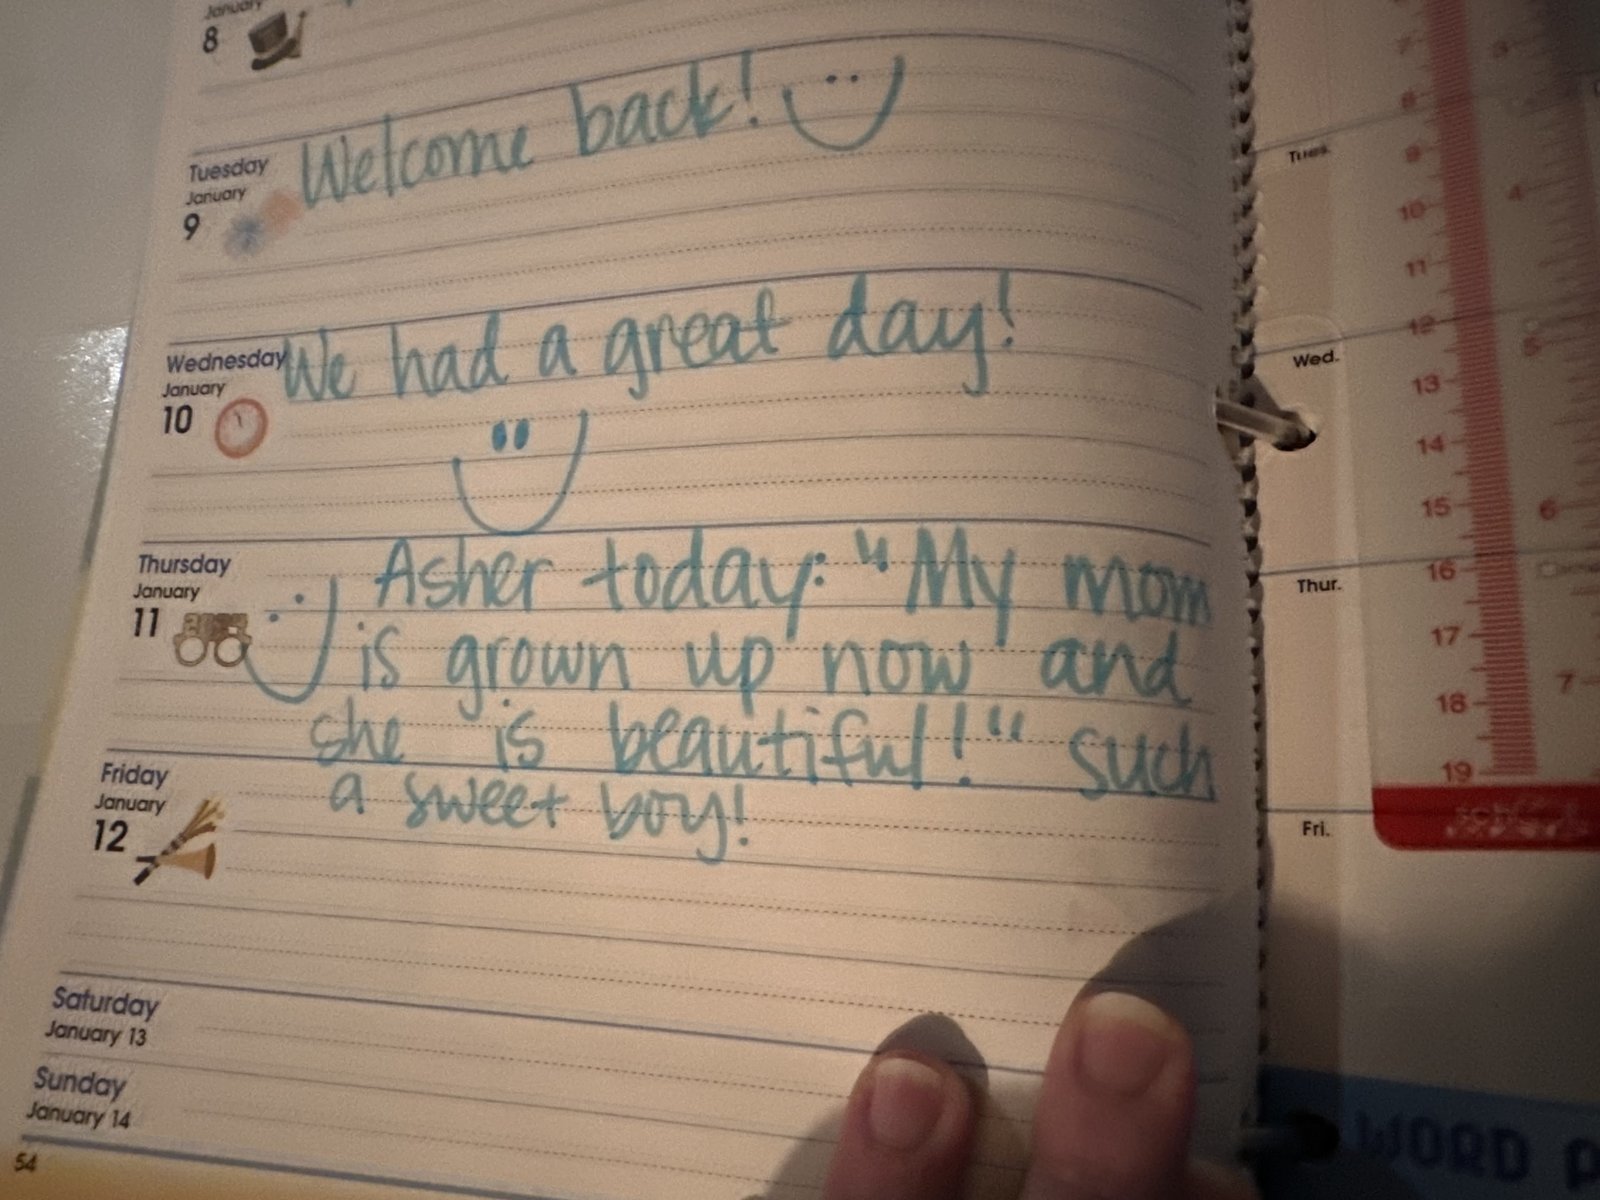 January
8
Welcome back!
Tuesday
January
9
We had a great day!
Wednesday
January
10
Asher today: "My mom
is grown up now and
she is beautiful!" such
a sweet boy!
Thursday
January
11
Friday
January
12
Saturday
January 13
Sunday
January 14
54
Tues.
Wed.
Thur.
Fri.
7
8
9
10
11
12
13
14
15
16
17
18
19
3
4
5
6
7
WORD